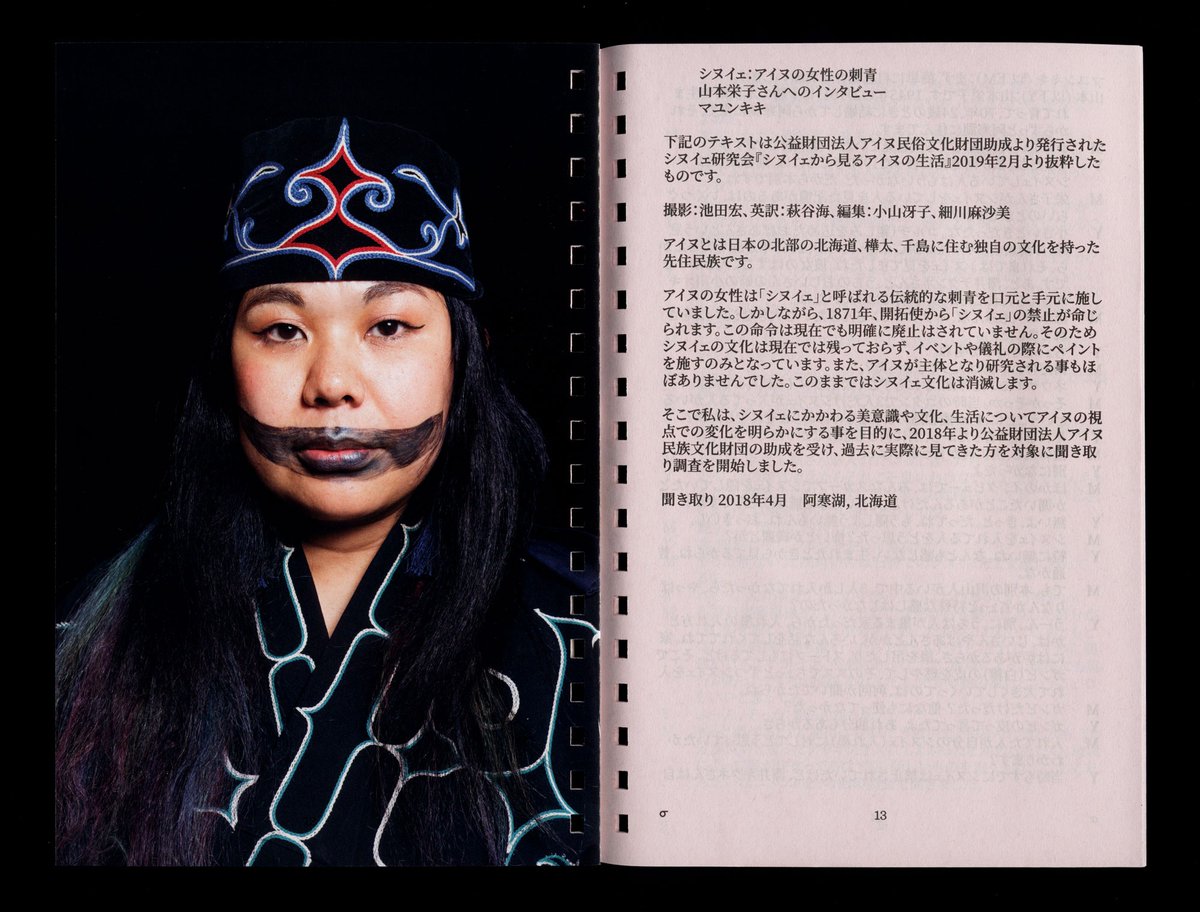 シヌイェ：アイヌの女性の刺青
山本栄子さんへのインタビュー
マユンキキ
下記のテキストは公益財団法人アイヌ民俗文化財団助成より発行された
シヌイェ研究会『シヌイェから見るアイヌの生活』2019年2月より抜粋した
ものです。
撮影：池田宏、英訳：萩谷海、編集：小山冴子、細川麻沙美
アイヌとは日本の北部の北海道、樺太、千島に住む独自の文化を持った
先住民族です。
アイヌの女性は「シヌイェ」と呼ばれる伝統的な刺青を口元と手元に施し
ていました。しかしながら、1871年、開拓使から「シヌイェ」の禁止が命じ
られます。この命令は現在でも明確に廃止はされていません。そのため
シヌイェの文化は現在では残っておらず、イベントや儀礼の際にペイント
を施すのみとなっています。また、アイヌが主体となり研究される事もほ
ぼありませんでした。このままではシヌイェ文化は消滅します。
そこで私は、シヌイェにかかわる美意識や文化、生活についてアイヌの視
点での変化を明らかにする事を目的に、2018年より公益財団法人アイヌ
民族文化財団の助成を受け、過去に実際に見てきた方を対象に聞き取
り調査を開始しました。
聞き取り 2018年4月　阿寒湖, 北海道
13